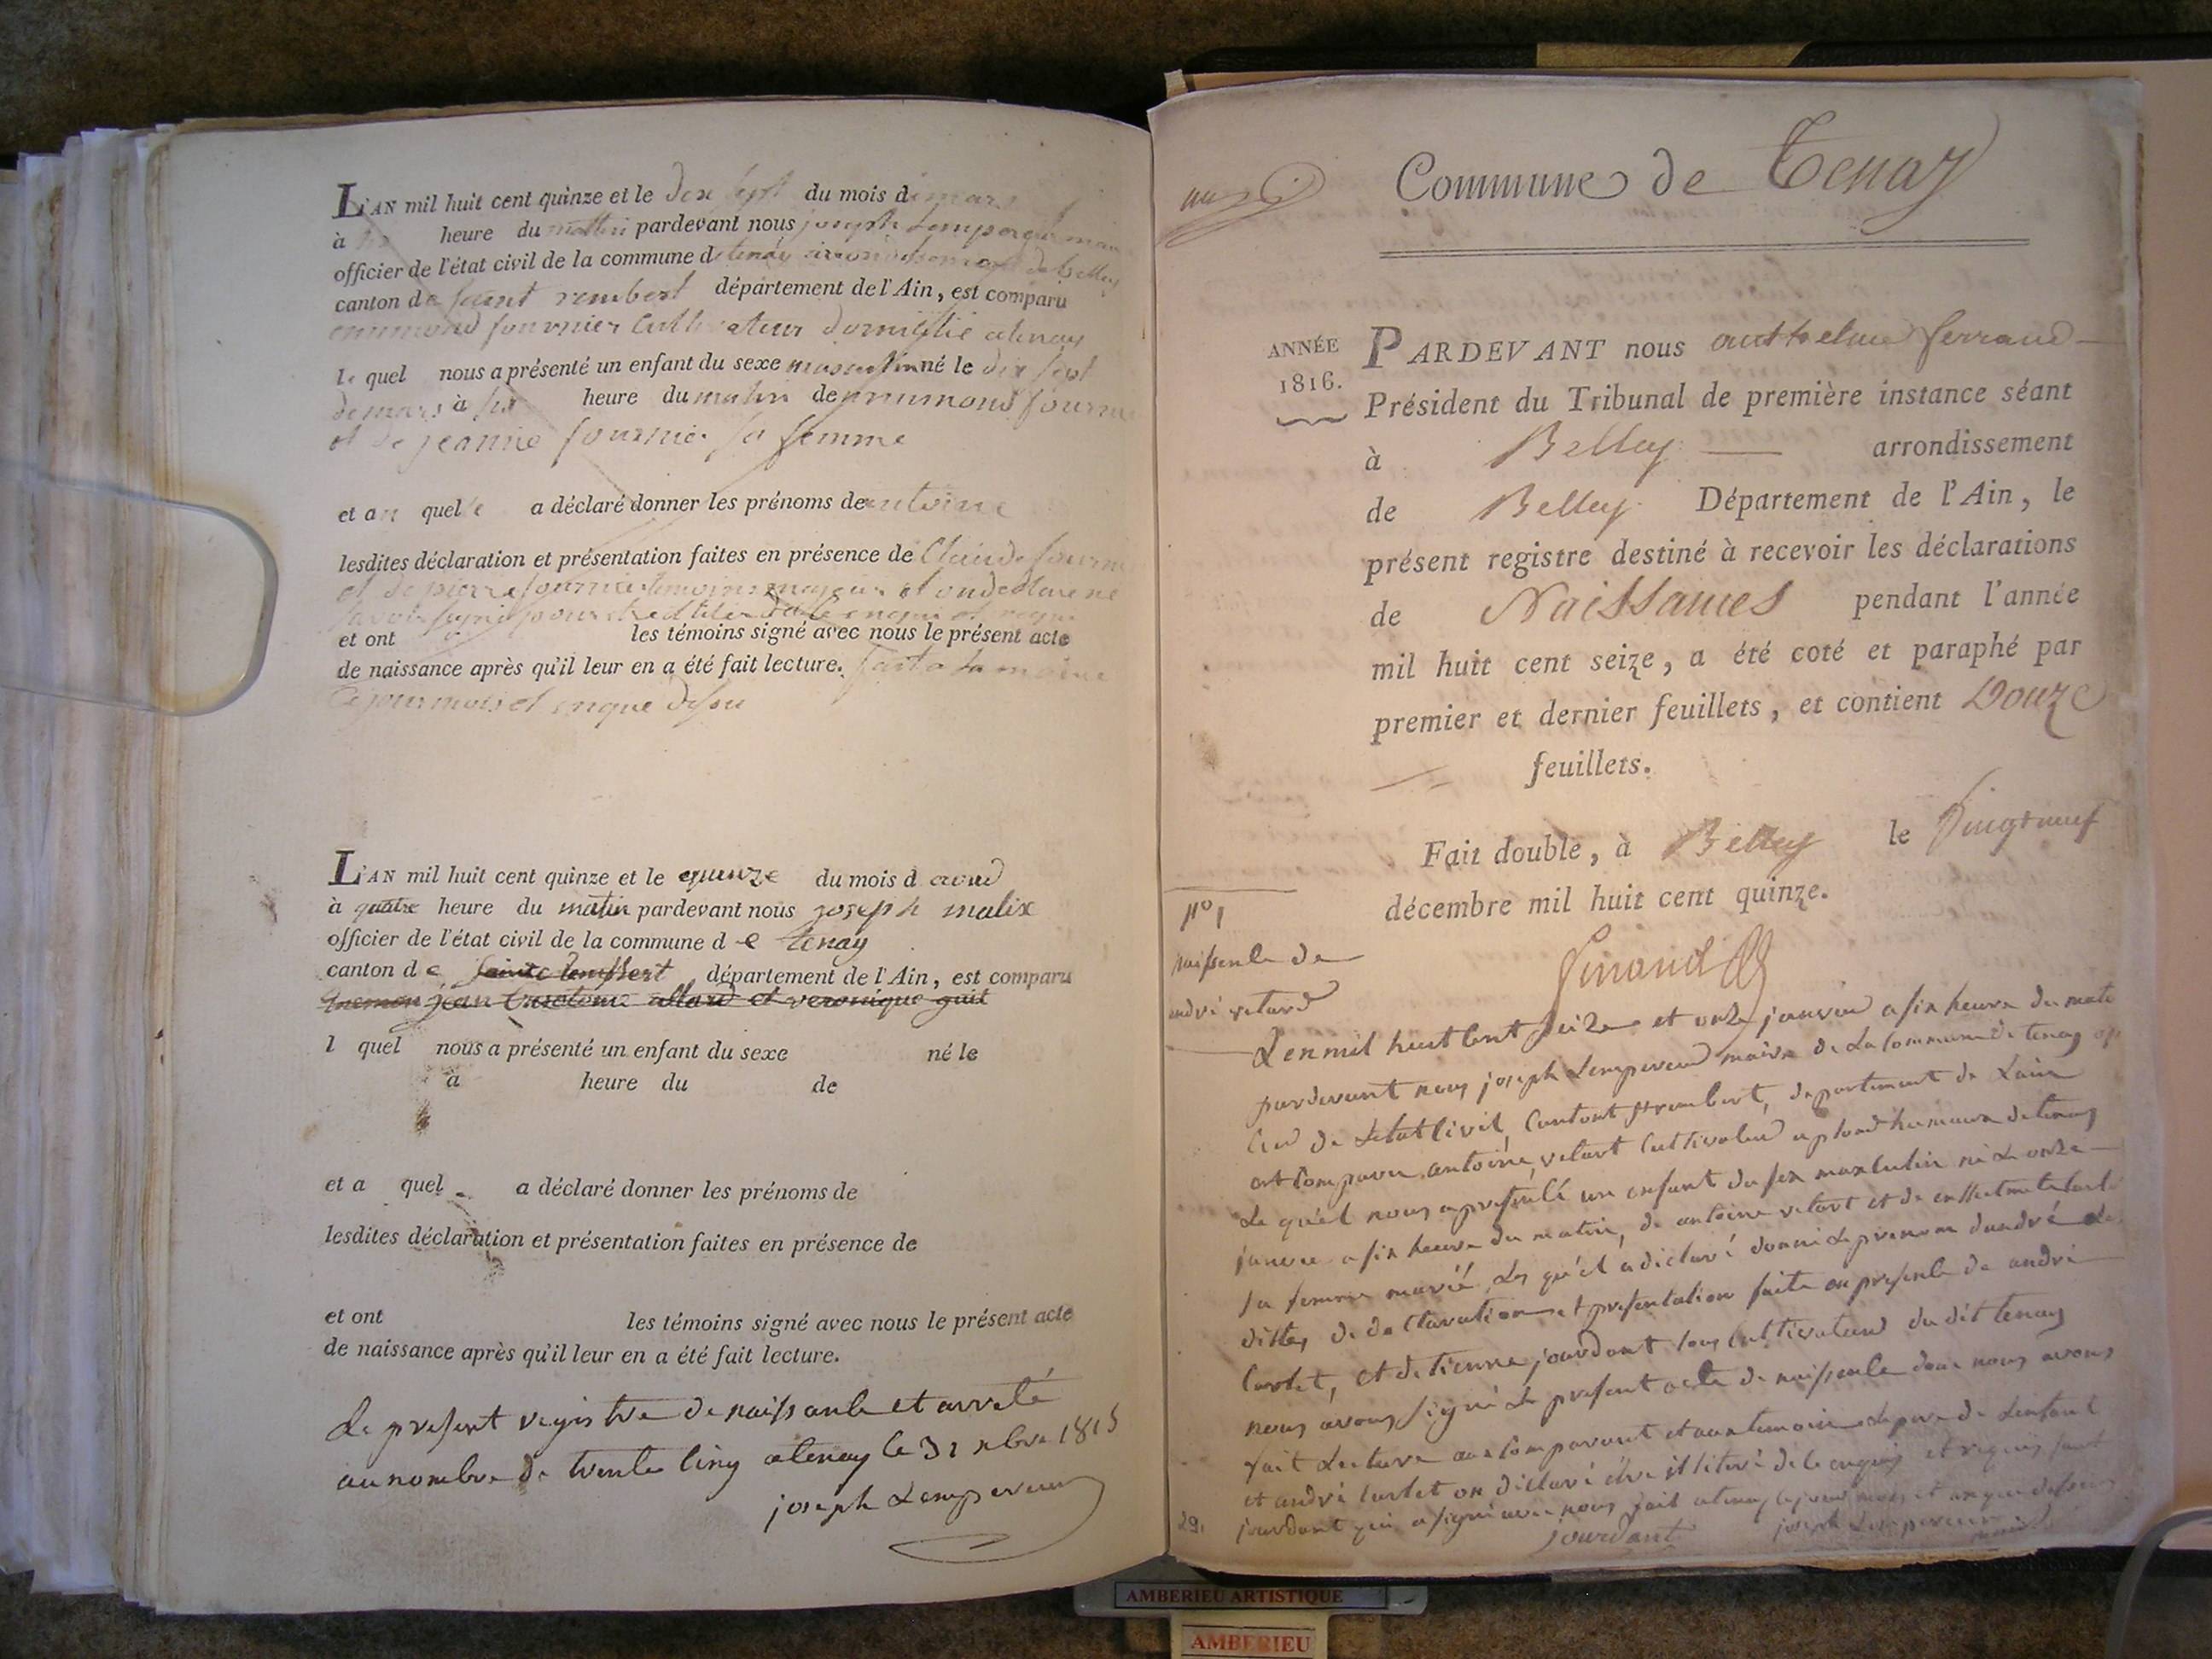 L'AN mil huit cent quinze et le dix sept du mois de mars
à six heure du mattin pardevant nous joseph Lempereur maire
officier de l'état civil de la commune de tenay arrondissement de belley
canton de saint rembert département de l'Ain, est comparu
ennimond fournier Cultivateur domicilié atenay
le quel nous a présenté un enfant du sexe masculin né le dix sept
de mars à six heure du matin de ennimond fournier
et de jeanne fournier sa femme
et au quelle a déclaré donner les prénoms de antoine
lesdites déclaration et présentation faites en présence de Claude fournier
et de pierre fournier temoins majeurs et on declare ne
savoir signé pour
et ont les témoins signé avec nous le présent acte
de naissance après qu'il leur en a été fait lecture. fait a la mairie
Ce jour mois et anque desu
L'AN mil huit cent quinze et le quinze du mois d avril
à quatre heure du matin pardevant nous joseph malix
officier de l'état civil de la commune d e tenay
canton d e département de l'Ain, est comparu
jean allard et veronique guit
l quel nous a présenté un enfant du sexe né le
à heure du de
et a quel a déclaré donner les prénoms de
lesdites déclaration et présentation faites en présence de
et ont les témoins signé avec nous le présent acte
de naissance après qu'il leur en a été fait lecture.
Le present registre de naissance et arreté
au nombre de trente cinq atenay le 31 xbre 1815
joseph Lempereur
Commune de Tenay
ANNÉE
1816.
PARDEVANT nous anthelme ferrand
Président du Tribunal de première instance séant
à Belley arrondissement
de Belley Département de l'Ain, le
présent registre destiné à recevoir les déclarations
de Naissances pendant l'année
mil huit cent seize, a été coté et paraphé par
premier et dernier feuillets, et contient Douze
feuillets.
Fait double, à Belley le vingt neuf
décembre mil huit cent quinze.
N° 1
naissence de
andré retard
L'en mil huit cent seize et onze janvier a six heure du mati
pardevant nous joseph Lempereur maire de La commune de tenay offi
cier de Letat civil, Canton st rembert, departement de Lain
est comparu antoine, retart Cultivateur de tenay
Le quel nous apresenté un enfant du sex maxculin né Le onze
janvier a six heure du matin, de antoine retart et de
sa femme marié, Les qu'el adiclaré donné Le prenom dandré Les
dittes de declaration et presentation faite en presence de andré
Cartet, et detienne jourdant tous Cultivateur du dit tenay
nous avons signé Le present acte de naissance dont nous avons
fait Lecture aux comparant et aux temoin Le pere de Lenfant
et andré Cartet on diclaré être illitéré de ce enquis et requis sauf
jourdant qui a signé avec nous fait atenay Le jour mois et anque dessus
29.
jourdant joseph Lempereur maire
AMBERIEU ARTISTIQUE
AMBERIEU